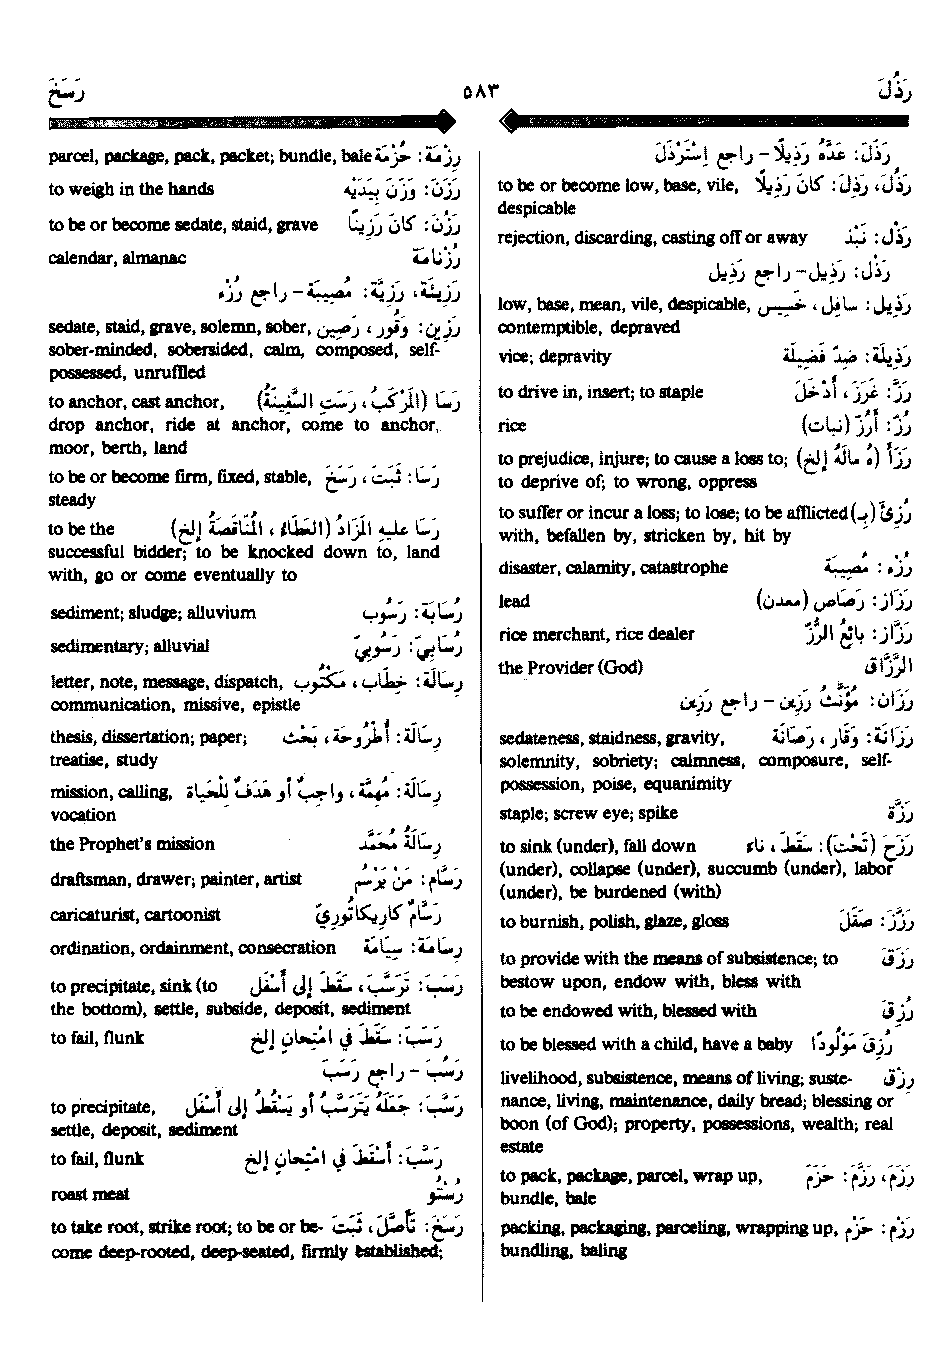 رَذُلَ
٥٨٣
رَسَخَ
رَذَلَ: عَدَّهُ رَذِيلًا - راجع اِسْتَرْذَلَ
رَذُلَ، رَذِلَ: كانَ رَذِيلًا to be or become low, base, vile,
despicable
رَذْل: نَبْذ rejection, discarding, casting off or away
رَذْل: رَذِيل - راجع رَذِيل
رَذِيل: سافِل، خَسِيس low, base, mean, vile, despicable,
contemptible, depraved
رَذِيلَة: ضِدّ فَضِيلَة vice; depravity
رَزَّ: غَرَزَ، أَدْخَلَ to drive in, insert; to staple
رُزّ: أَرُزّ (نبات) rice
رَزَأَ (هُ مالَهُ إلخ) to prejudice, injure; to cause a loss to;
to deprive of; to wrong, oppress
رُزِئَ (بِـ) to suffer or incur a loss; to lose; to be afflicted
with, befallen by, stricken by, hit by
رُزْء: مُصِيبَة disaster, calamity, catastrophe
رَزَاز: رَصَاص (معدن) lead
رَزَّاز: بائِعُ الرُّزّ rice merchant, rice dealer
الرَّزَّاق the Provider (God)
رَزَان: مُؤَنَّث رَزِين - راجع رَزِين
رَزَانَة: وَقَار، رَصَانَة sedateness, staidness, gravity,
solemnity, sobriety; calmness, composure, self-
possession, poise, equanimity
رَزَّة staple; screw eye; spike
رَزَحَ (تَحْتَ): سَقَطَ، ناءَ to sink (under), fall down
(under), collapse (under), succumb (under), labor
(under), be burdened (with)
رَزَّزَ: صَقَلَ to burnish, polish, glaze, gloss
رَزَقَ to provide with the means of subsistence; to
bestow upon, endow with, bless with
رُزِقَ to be endowed with, blessed with
رُزِقَ مَوْلُودًا to be blessed with a child, have a baby
رِزْق livelihood, subsistence, means of living; suste-
nance, living, maintenance, daily bread; blessing or
boon (of God); property, possessions, wealth; real
estate
رَزَمَ، رَزَّمَ: حَزَمَ to pack, package, parcel, wrap up,
bundle, bale
رَزْم: حَزْم packing, packaging, parceling, wrapping up,
bundling, baling
رِزْمَة: حُزْمَة parcel, package, pack, packet; bundle, bale
رَزَنَ: وَزَنَ بِيَدَيْه to weigh in the hands
رَزُنَ: كانَ رَزِينًا to be or become sedate, staid, grave
رُزْنامَة calendar, almanac
رَزِيئَة، رَزِيَّة: مُصِيبَة - راجع رُزْء
رَزِين: وَقُور، رَصِين sedate, staid, grave, solemn, sober,
sober-minded, sobersided, calm, composed, self-
possessed, unruffled
رَسَا (المَرْكَبُ، رَسَتِ السَّفِينَةُ) to anchor, cast anchor,
drop anchor, ride at anchor, come to anchor,
moor, berth, land
رَسَا: ثَبَتَ، رَسَخَ to be or become firm, fixed, stable,
steady
رَسَا عليهِ المَزَادُ (العَطَاءُ، المُنَاقَصَةُ إلخ) to be the
successful bidder; to be knocked down to, land
with, go or come eventually to
رُسَابَة: رُسُوب sediment; sludge; alluvium
رُسَابِيّ: رُسُوبِيّ sedimentary; alluvial
رِسَالَة: خِطَاب، مَكْتُوب letter, note, message, dispatch,
communication, missive, epistle
رِسَالَة: أُطْرُوحَة، بَحْث thesis, dissertation; paper;
treatise, study
رِسَالَة: مُهِمَّة، واجِبٌ أو هَدَفٌ لِلْحَيَاة mission, calling,
vocation
رِسَالَةُ مُحَمَّد the Prophet's mission
رَسَّام: مَنْ يَرْسُم draftsman, drawer; painter, artist
رَسَّامٌ كارِيكاتُورِيّ caricaturist, cartoonist
رِسَامَة: سِيَامَة ordination, ordainment, consecration
رَسَبَ: تَرَسَّبَ، سَقَطَ إلى أَسْفَل to precipitate, sink (to
the bottom), settle, subside, deposit, sediment
رَسَبَ: سَقَطَ في امْتِحانٍ إلخ to fail, flunk
رَسُبَ - راجع رَسَبَ
رَسَّبَ: جَعَلَهُ يَتَرَسَّبُ أو يَسْقُطُ إلى أَسْفَل to precipitate,
settle, deposit, sediment
رَسَّبَ: أَسْقَطَ في امْتِحانٍ إلخ to fail, flunk
رُسْتُو roast meat
رَسَخَ: تَأَصَّلَ، ثَبَتَ to take root, strike root; to be or be-
come deep-rooted, deep-seated, firmly established;